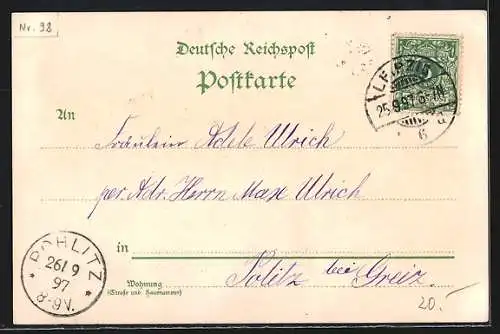 Nr. 98
Deutsche Reichspost
Postkarte
LEIPZIG
25.9.97. 6-7N
6 d
An
Fräulein Adele Ulrich
per. Adr. Herrn Max Ulrich
in
Politz bei Greiz.
POHLITZ
26/9
97
8-9V.
Wohnung
(Straße und Hausnummer)
20.-